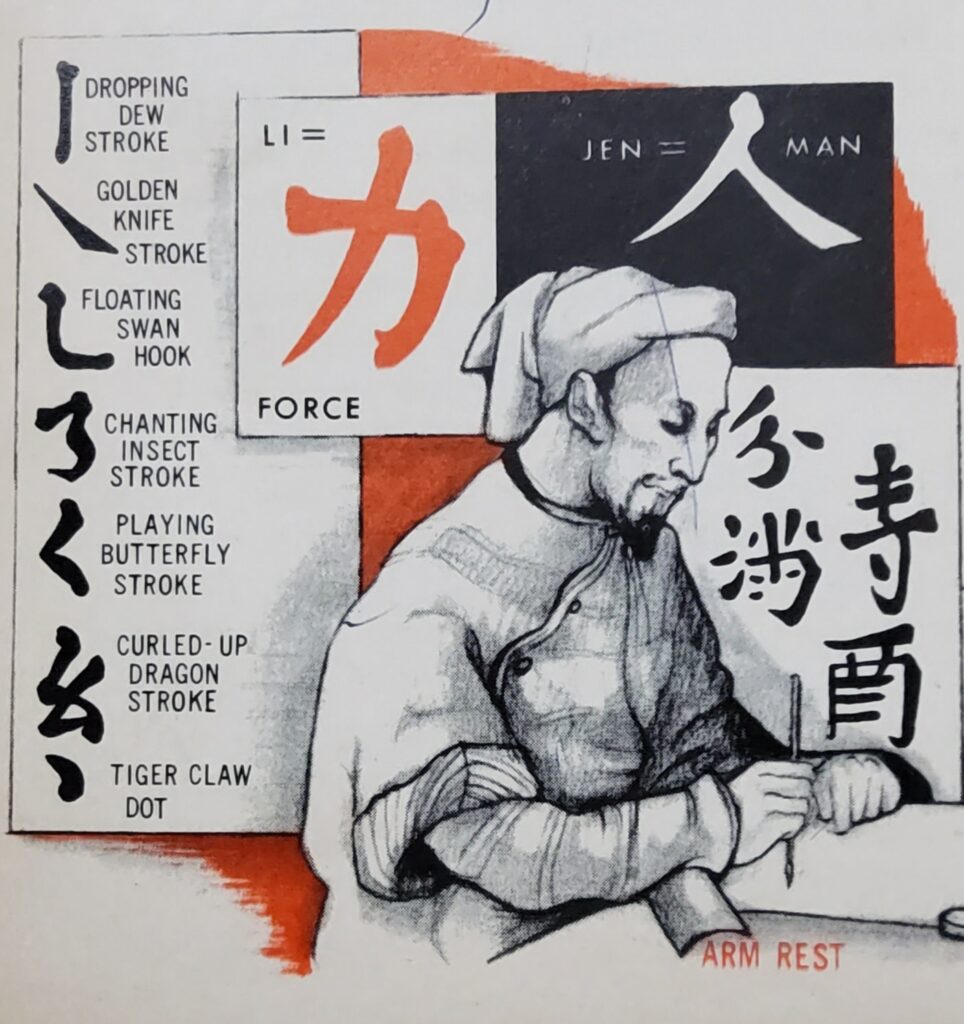 DROPPING
DEW
STROKE
GOLDEN
KNIFE
STROKE
FLOATING
SWAN
HOOK
CHANTING
INSECT
STROKE
PLAYING
BUTTERFLY
STROKE
CURLED-UP
DRAGON
STROKE
TIGER CLAW
DOT
LI =
力
FORCE
JEN = 人 MAN
分
寺
酉
ARM REST